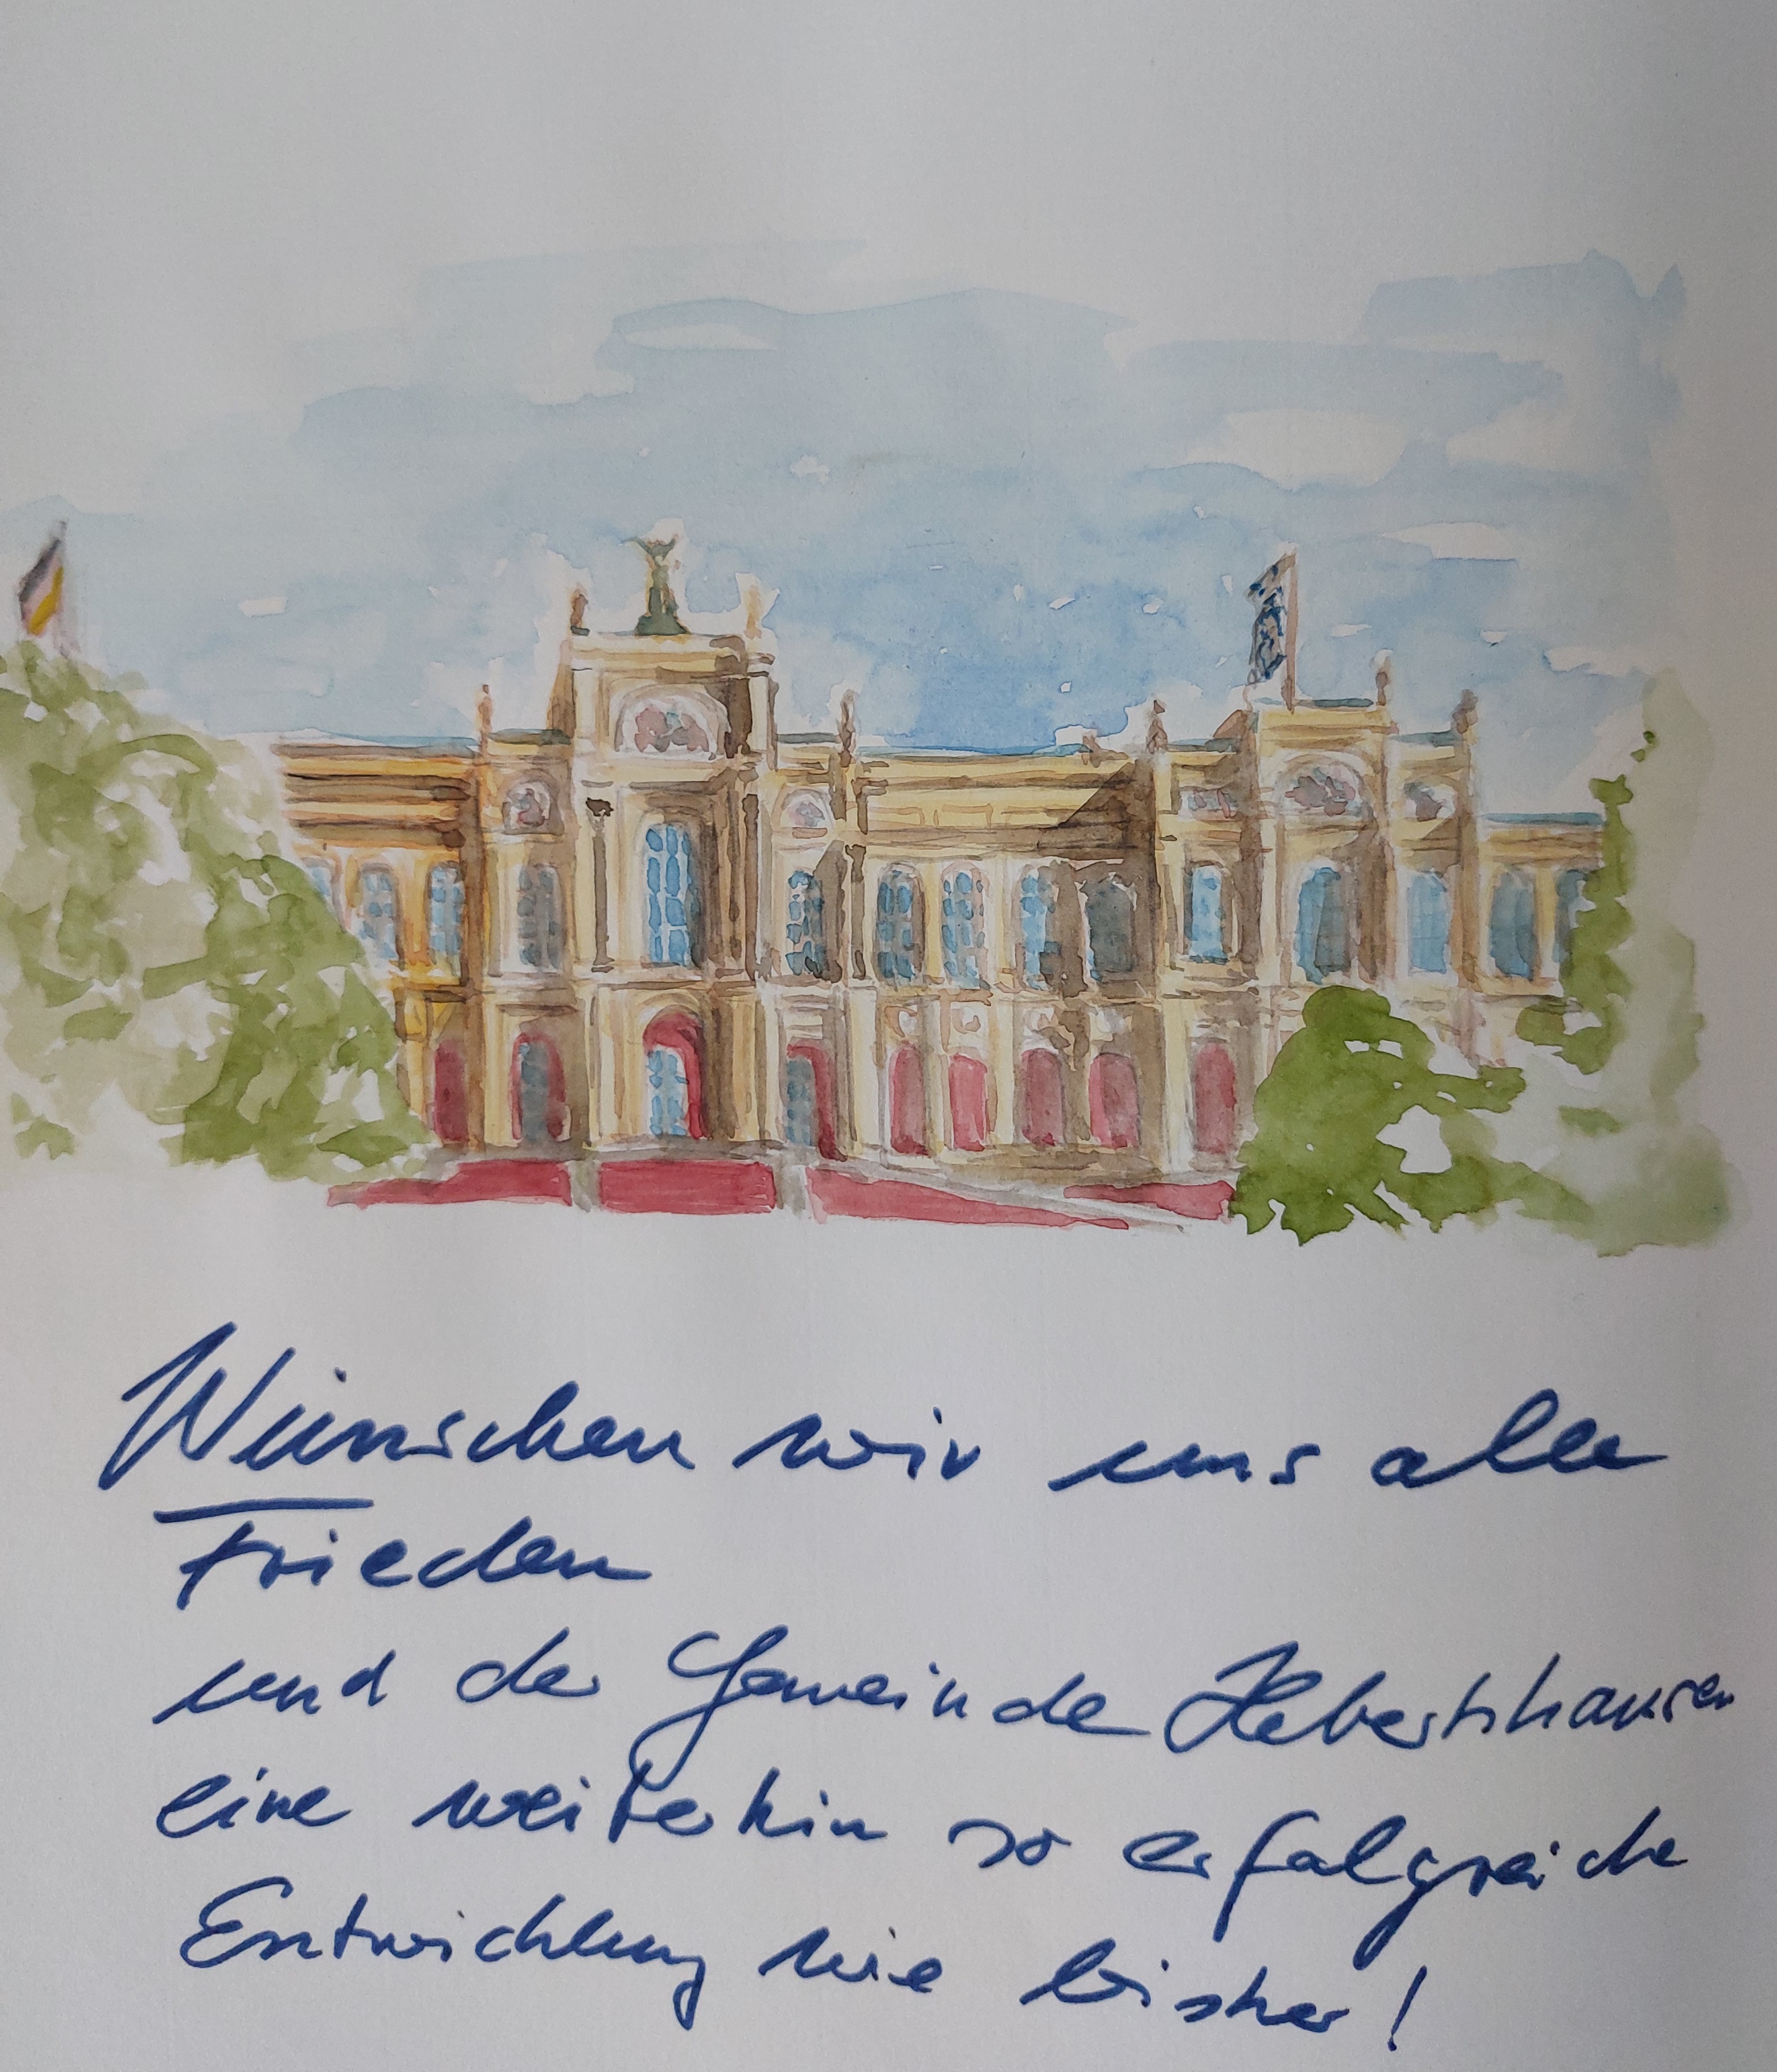 Wünschen wir uns allen
Frieden
und der Gemeinde Hebertshausen
eine weiterhin so erfolgreiche
Entwicklung wie bisher!